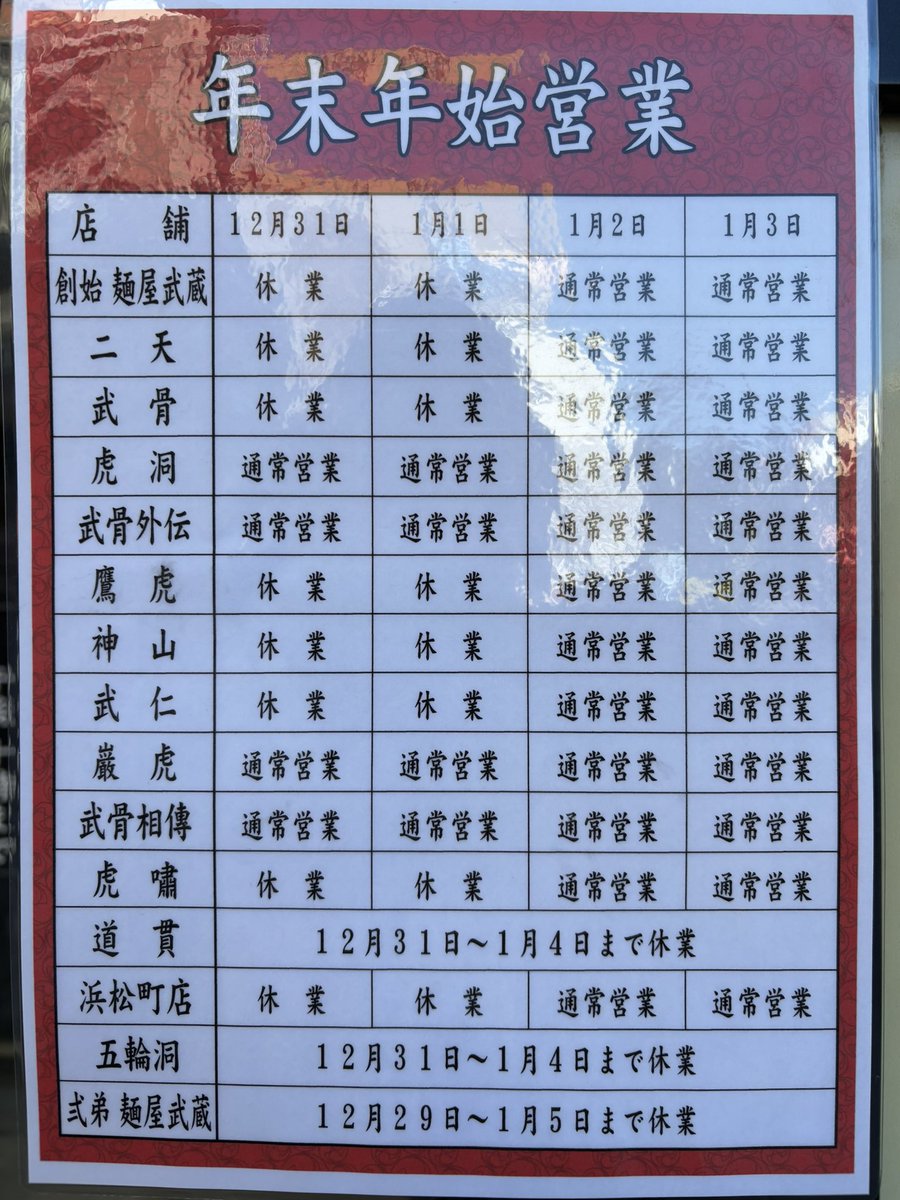 年末年始営業
店舗 12月31日 1月1日 1月2日 1月3日
創始 麺屋武蔵 休業 休業 通常営業 通常営業
二天 休業 休業 通常営業 通常営業
武骨 休業 休業 通常営業 通常営業
虎洞 通常営業 通常営業 通常営業 通常営業
武骨外伝 通常営業 通常営業 通常営業 通常営業
鷹虎 休業 休業 通常営業 通常営業
神山 休業 休業 通常営業 通常営業
武仁 休業 休業 通常営業 通常営業
巌虎 通常営業 通常営業 通常営業 通常営業
武骨相傳 通常営業 通常営業 通常営業 通常営業
虎嘯 休業 休業 通常営業 通常営業
道貫 12月31日～1月4日まで休業
浜松町店 休業 休業 通常営業 通常営業
五輪洞 12月31日～1月4日まで休業
弐弟 麺屋武蔵 12月29日～1月5日まで休業